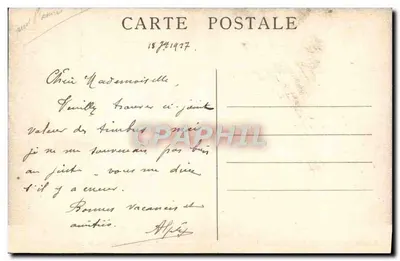 CARTE POSTALE
18 7bre 1927
Chère Mademoiselle,
Veuillez trouver ci-joint
valeur des timbres, mais
je ne me souvenais pas bien
au juste - vous me direz
s'il y a erreur.
Bonnes vacances et
amitiés.
CPAPHIL